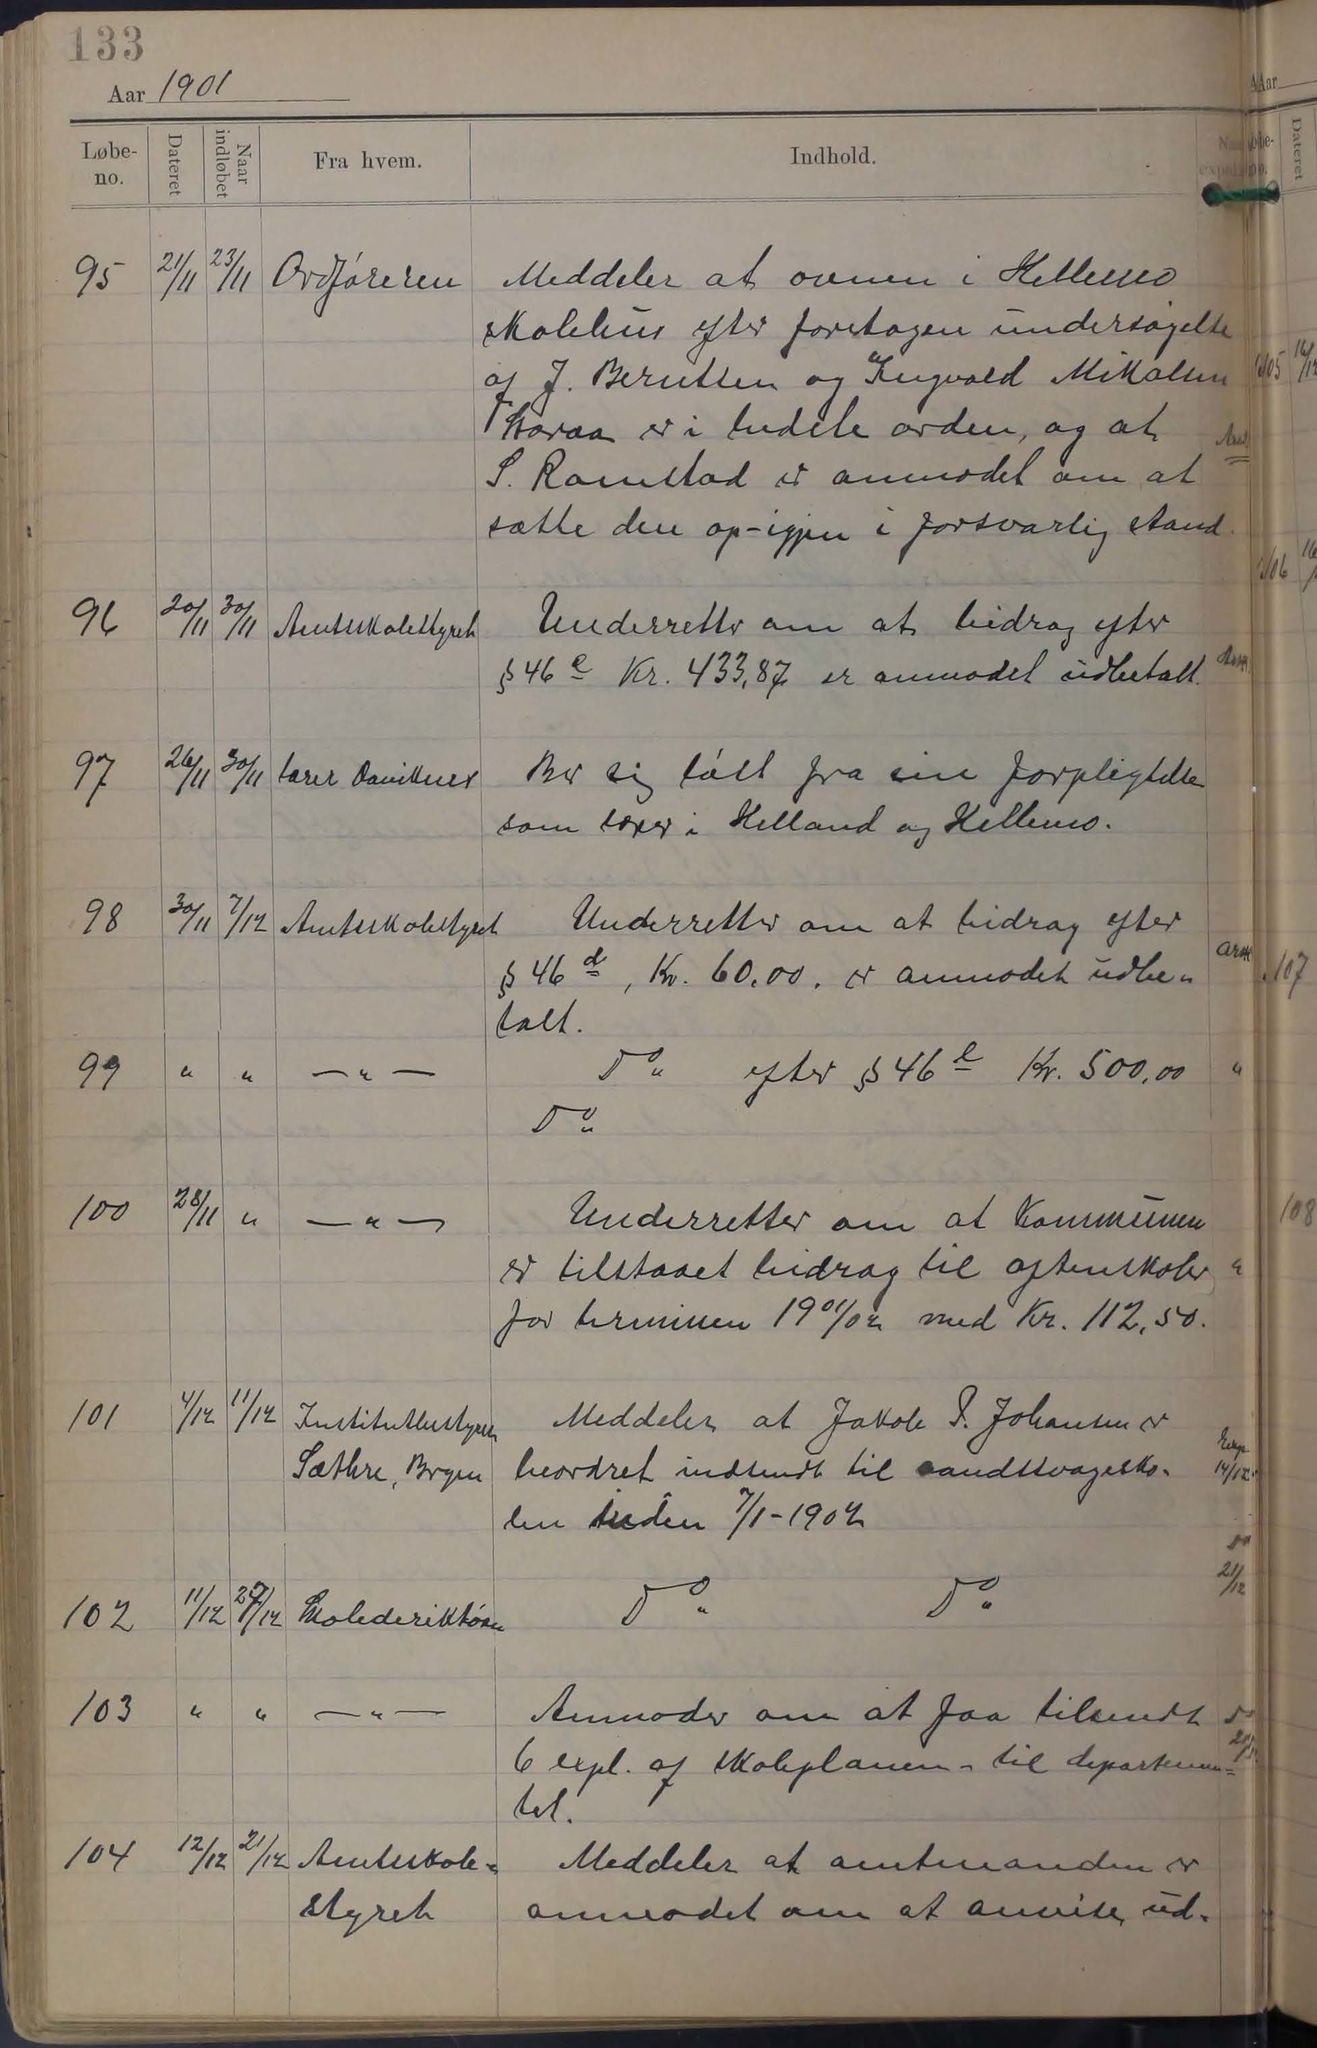 133
Aar 1901
Løbe-no. Dateret Naar indløbet Fra hvem. Indhold.
95 21/11 23/11 Ordføreren Meddeler at ovnen i Hellemo
skolehus efter foretagen undersøgelse
af J. Berntsen og Ingvald Mikalsen
Storaa er i bedste orden, og at
S. Ramstad er anmodet om at
sætte den op-igjen i forsvarlig stand.
96 20/11 30/11 Amtsskolestyret Underretter om at bidrag efter
§ 46 e Kr. 433,87 er anmodet udbetalt.
97 26/11 30/11 lærer Daviknes Ber sig løst fra sin forpligtelse
som lærer i Helland og Hellemo.
98 30/11 7/12 Amtsskolestyret Underretter om at bidrag efter
§ 46 d, Kr. 60.00. er anmodet udbe-
talt.
99 " " —"— Do efter § 46 e Kr. 500,00 "
Do
100 28/11 " —"— Underretter om at Kommunen
er tilstaaet bidrag til aftenskoler "
for terminen 1901/02 med Kr. 112,50.
101 4/12 11/12 Institutbestyrer Meddeler at Jakob P. Johansen er
Sæthre, Bergen beordret indsendt til aandssvagesko-
len inden 7/1-1902
14/12
102 11/12 21/12 Skolederiktøren Do Do 21/12
103 " " —"— Anmoder om at faa tilsendt
6 expl. af skoleplanen - til departemen-
tet.
104 12/12 21/12 Amtsskole- Meddeler at amtmanden er
styret anmodet om at anvise ud-
Aar
Dateret
105
106
107
108